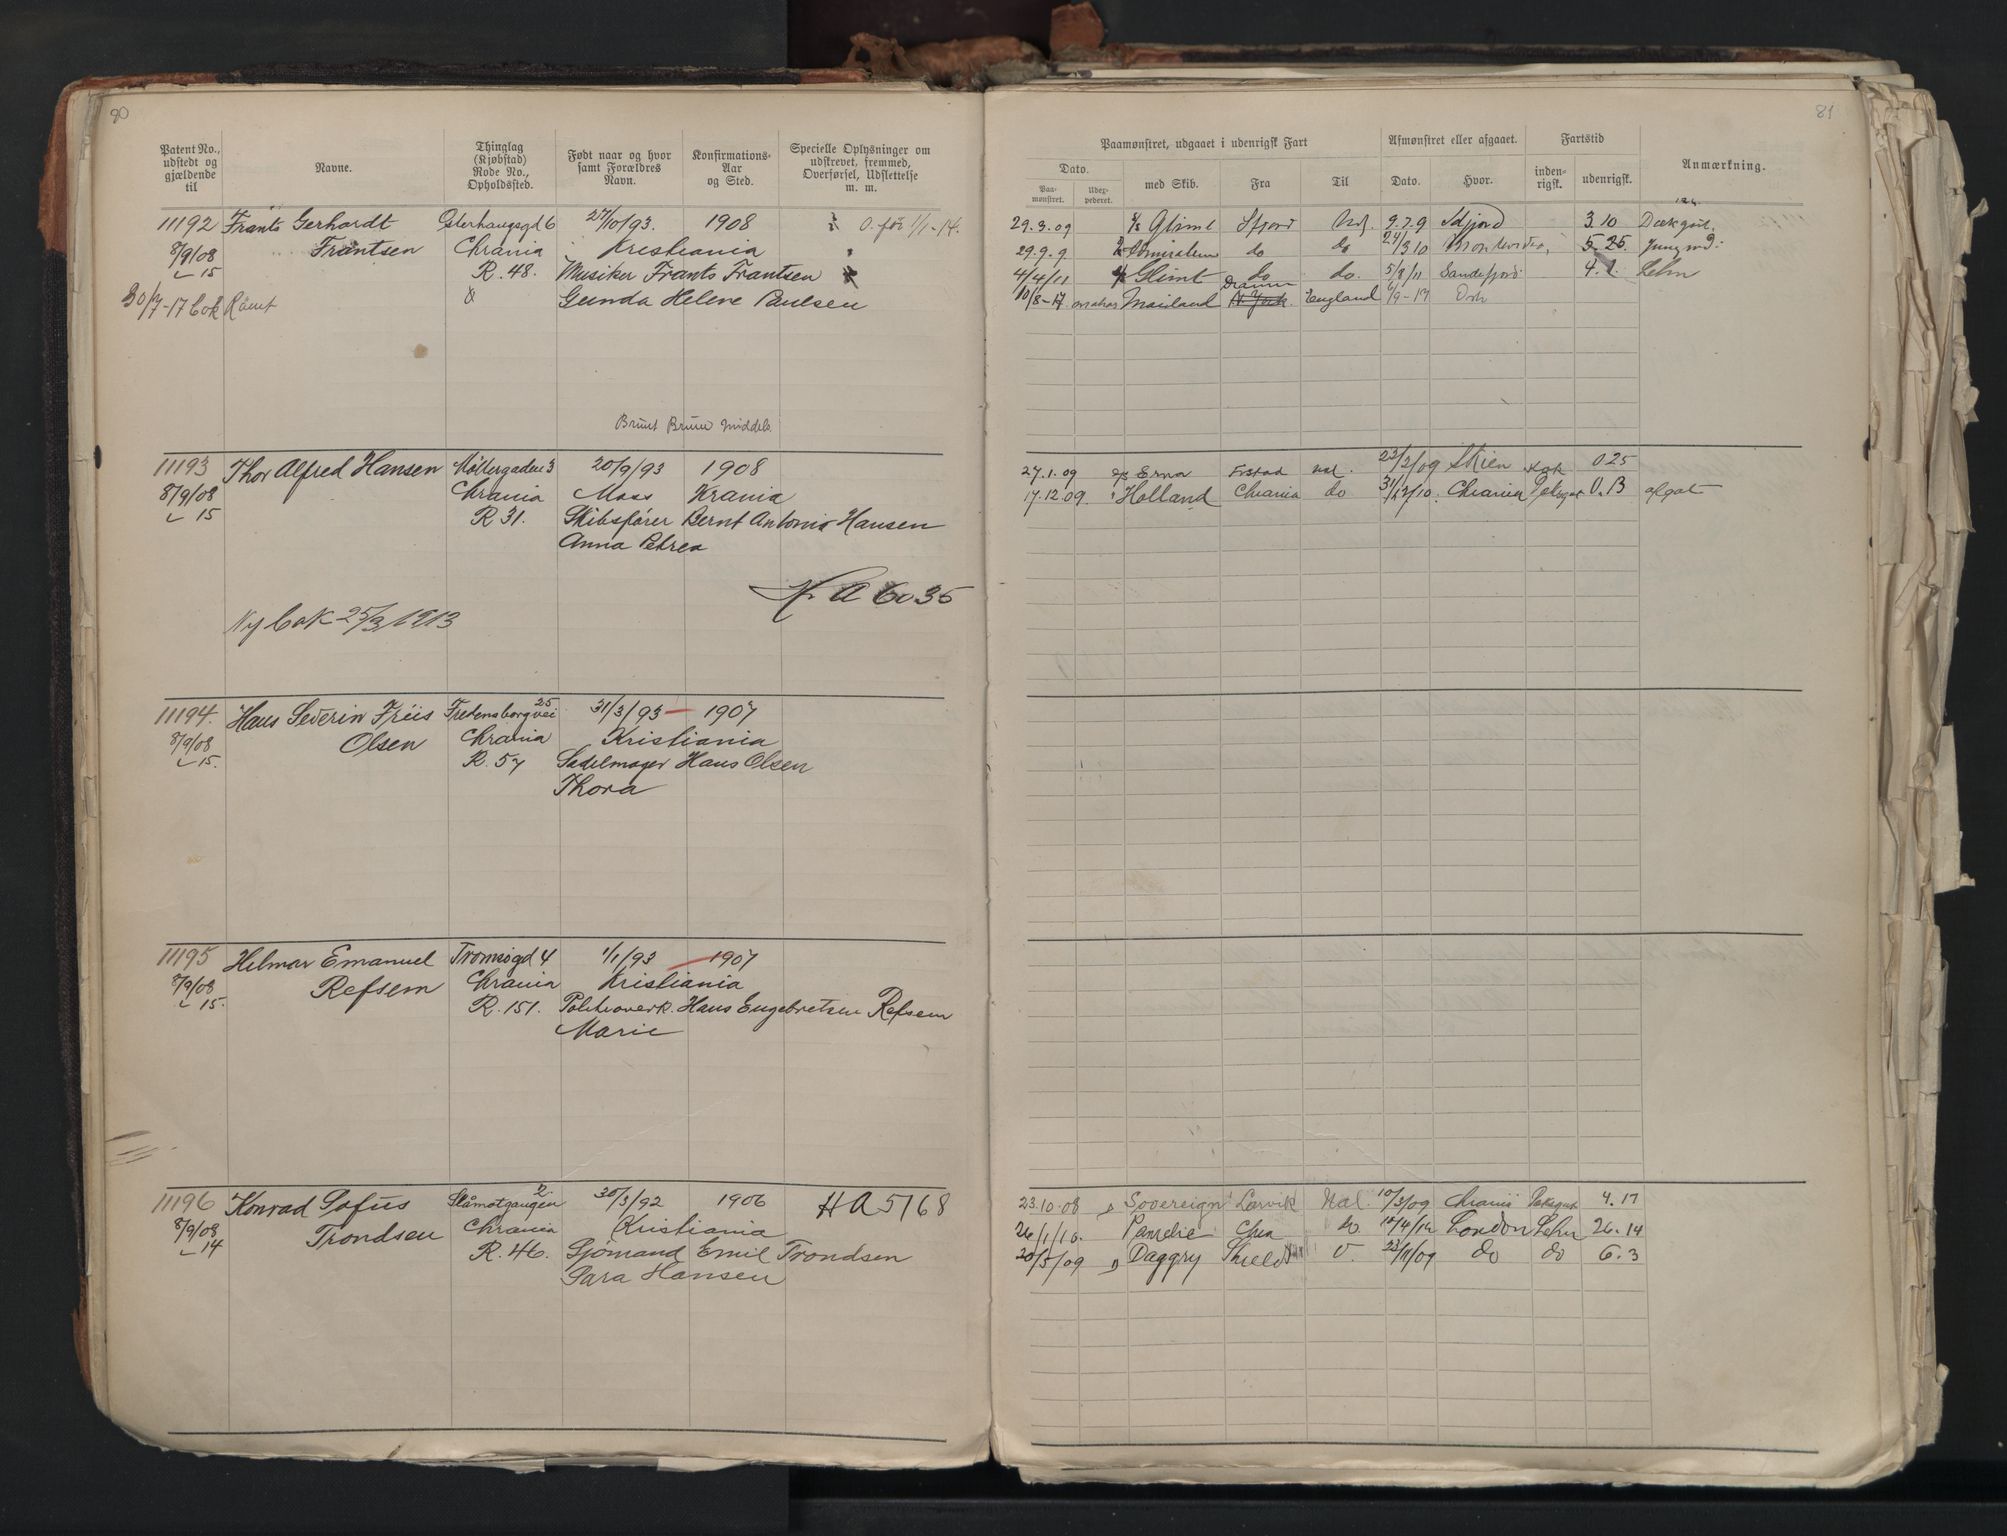 80
Patent No., udstedt og gjældende til
Navne.
Thinglag (Kjøbstad) Rode No., Opholdssted.
Født naar og hvor samt Forældres Navn.
Konfirmations-Aar og Sted.
Specielle Oplysninger om udskrevet, fremmed, Overførsel, Udslettelse m. m.
11192 Frants Gerhardt Osterhausgd 6 27/10/93. 1908 O. før 1/1-14.
8/9/08 Frantsen Chrania Kristiania
15 R. 48. Musiker Frants Frantsen
30/7-17 bok Rømt Gunda Helene Paulsen
Brunt Brune middels.
11193 Thor Alfred Hansen Møllergaden 3 20/9/93 1908
8/9/08 Chrania Moss Krania
15 R 31. Skibsfører Bernt Antonio Hansen
Anna Petrea
H. A 6035
Ny bok 25/3/1913
11194. Hans Severin Friis Fredensborgvei 25 31/3/93 — 1907
8/9/08 Olsen Chrania Kristiania
15. R. 57 Sadelmager Hans Olsen
Thora
11195 Helmar Emanuel Tromsøgd 4 1/1/93 — 1907
8/9/08 Refsem Chrania Kristiania
15. R. 151. Politioverk. Hans Engebretsen Refsem
Marie
11196 Konrad Sofus Slåmotgangen 2 30/3/92 1906 HA 5168
8/9/08 Trondsen Chrania Kristiania
14 R. 46. Sjömand Emil Trondsen
Sara Hansen
81
Paamønstret, udgaaet i udenrigsk Fart
Afmønstret eller afgaaet.
Fartstid
Anmærkning.
Dato.
Paa-mønstret.
Udex-pederet.
med Skib.
Fra
Til
Dato.
Hvor.
inden-rigsk.
udenrigsk.
29.3.09 Glimt Sfjord 9.7.9 Sdfjord 3.10 Dækgut.
29.9.9 do do 24/3/10 5.25. Jungmd.
4/4/11 Glimt do do. 5/8/11 Sandefjord 4.1. Lehn
10/8-17 Mailand Drammen N. York England 9-17
27.1.09 Erna Frstad 23/2/09 Skien Kok 0 25
17.12.09 Holland Chrania do 31/12/10. Chrania Dæksgut 0.13 afgåt
23.10.08 Sovereign Larvik Hal. 10/3/09 Chrania Dæksgut 4.17
26/1/10. Chra do 10/4/12 London Lehn 26.14
20/5/09 Daggry Shields V. 23/11/09 do do 6.3